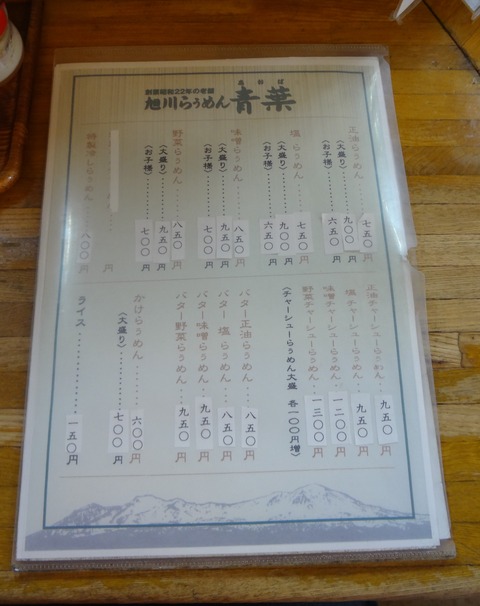 創業昭和22年の老舗
旭川らぅめん青葉
あおば
正油らぅめん……七五〇円
(大盛り)……九〇〇円
(お子様)……六五〇円
塩らぅめん……七五〇円
(大盛り)……九〇〇円
(お子様)……六五〇円
味噌らぅめん……八五〇円
(大盛り)……九五〇円
(お子様)……七〇〇円
野菜らぅめん……八五〇円
(大盛り)……九五〇円
(お子様)……七〇〇円
円
特製冷しらぅめん……八〇〇円
正油チャーシューらぅめん…九五〇円
塩チャーシューらぅめん…九五〇円
味噌チャーシューらぅめん…一二〇〇円
野菜チャーシューらぅめん…一三〇〇円
(チャーシューらぅめん大盛 各一〇〇円増)
バター正油らぅめん…八五〇円
バター塩らぅめん…八五〇円
バター味噌らぅめん…九五〇円
バター野菜らぅめん…九五〇円
かけらぅめん……六〇〇円
(大盛り)……七〇〇円
ライス……一五〇円